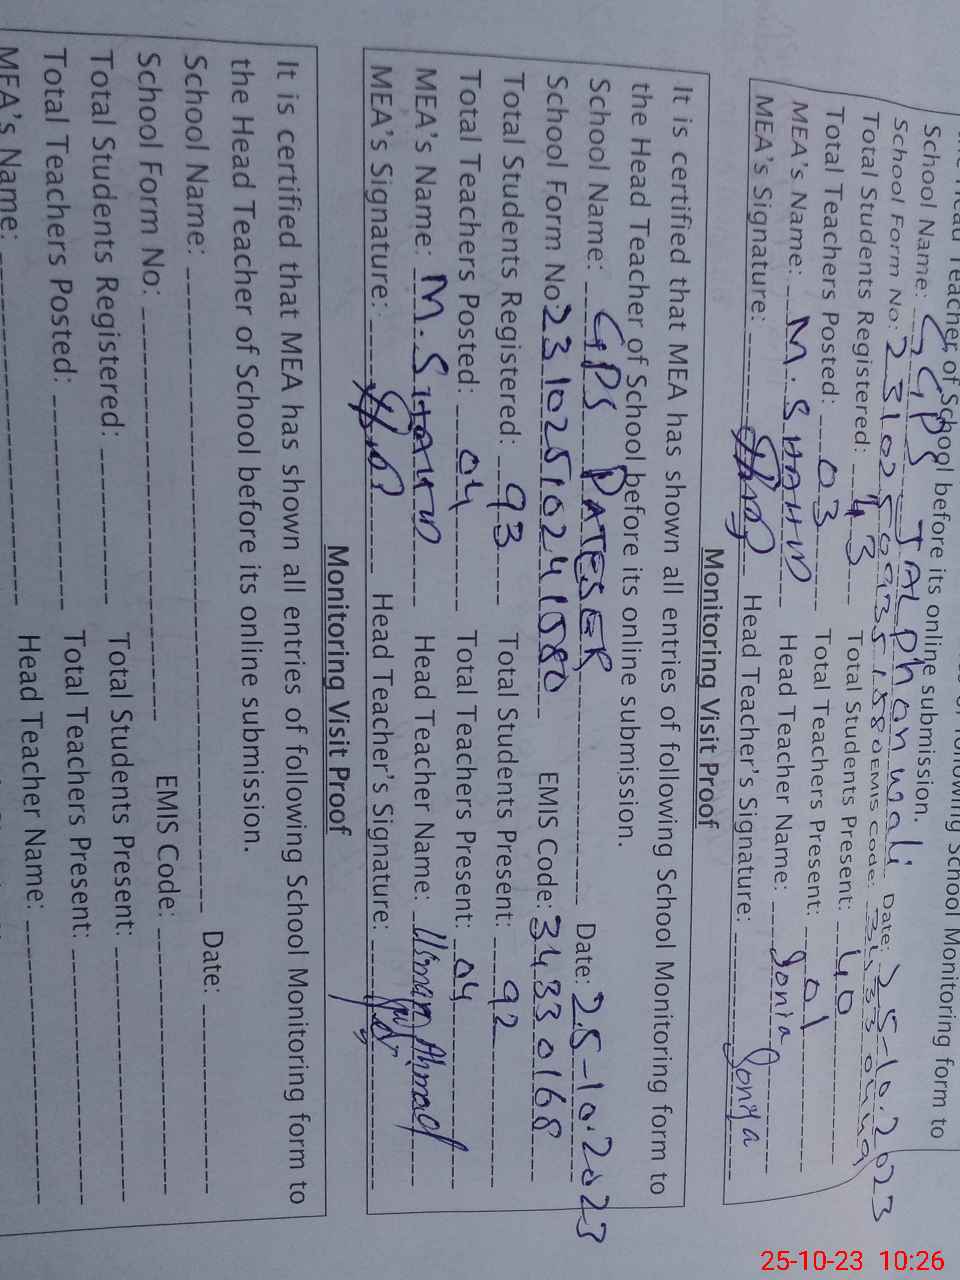 the Head Teacher of School before its online submission.
School Name: GGPS JALPhanwali Date: 25-10.2023
School Form No: EMIS Code:
Total Students Registered: 43 Total Students Present: 40
Total Teachers Posted: 03 Total Teachers Present: 01
MEA's Name: M. SHAHID Head Teacher Name: Sonia
MEA's Signature: Head Teacher's Signature: Sonya
Monitoring Visit Proof
It is certified that MEA has shown all entries of following School Monitoring form to
the Head Teacher of School before its online submission.
School Name: GPS PATESER Date: 25-10.2023
School Form No: 23102510241580 EMIS Code: 34330168
Total Students Registered: 93 Total Students Present: 92
Total Teachers Posted: 04 Total Teachers Present: 04
MEA's Name: M. SHAHID Head Teacher Name: Usman Ahmad
MEA's Signature: Head Teacher's Signature:
Monitoring Visit Proof
It is certified that MEA has shown all entries of following School Monitoring form to
the Head Teacher of School before its online submission.
School Name: Date:
School Form No: EMIS Code:
Total Students Registered: Total Students Present:
Total Teachers Posted: Total Teachers Present:
MEA's Name: Head Teacher Name:
25-10-23 10:26